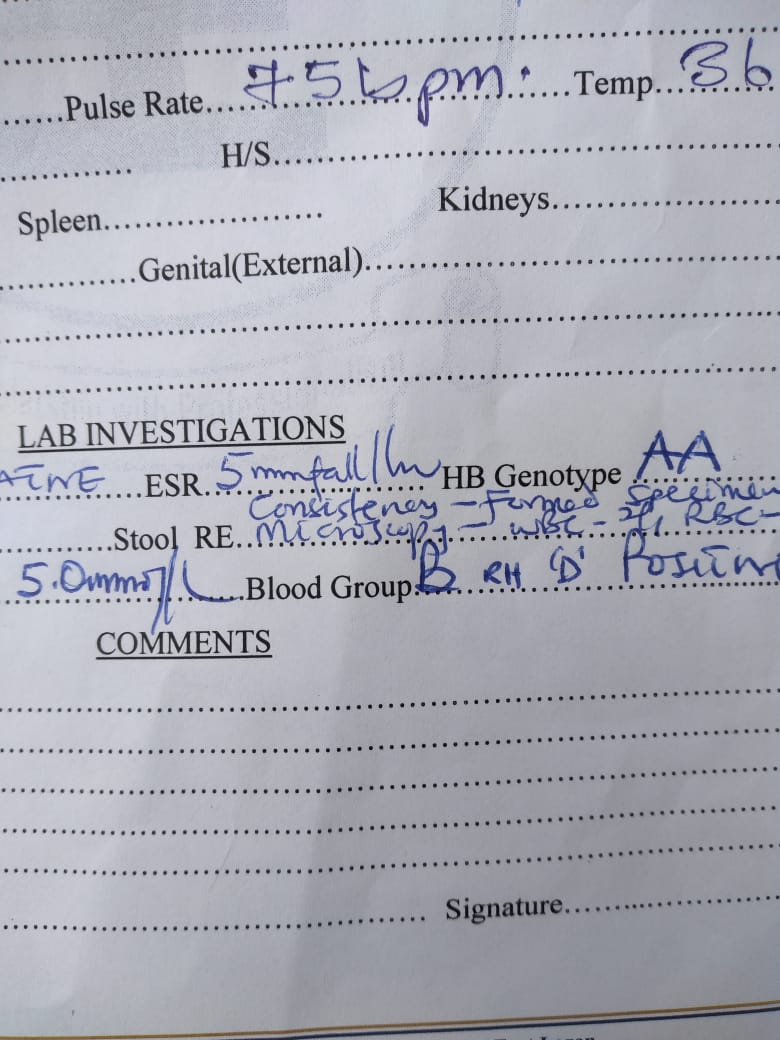 ......Pulse Rate......75 bpm.......Temp...36
............. H/S............
Spleen.................... Kidneys............
.............Genital(External)............
LAB INVESTIGATIONS
..........ESR..5mmfall/hr HB Genotype..AA
Consistency - Formed Specimen
..........Stool RE..Microscopy - WBC - RBC -
5.0mmol/L.....Blood Group..B RH 'D' Positive
COMMENTS
.......... Signature............